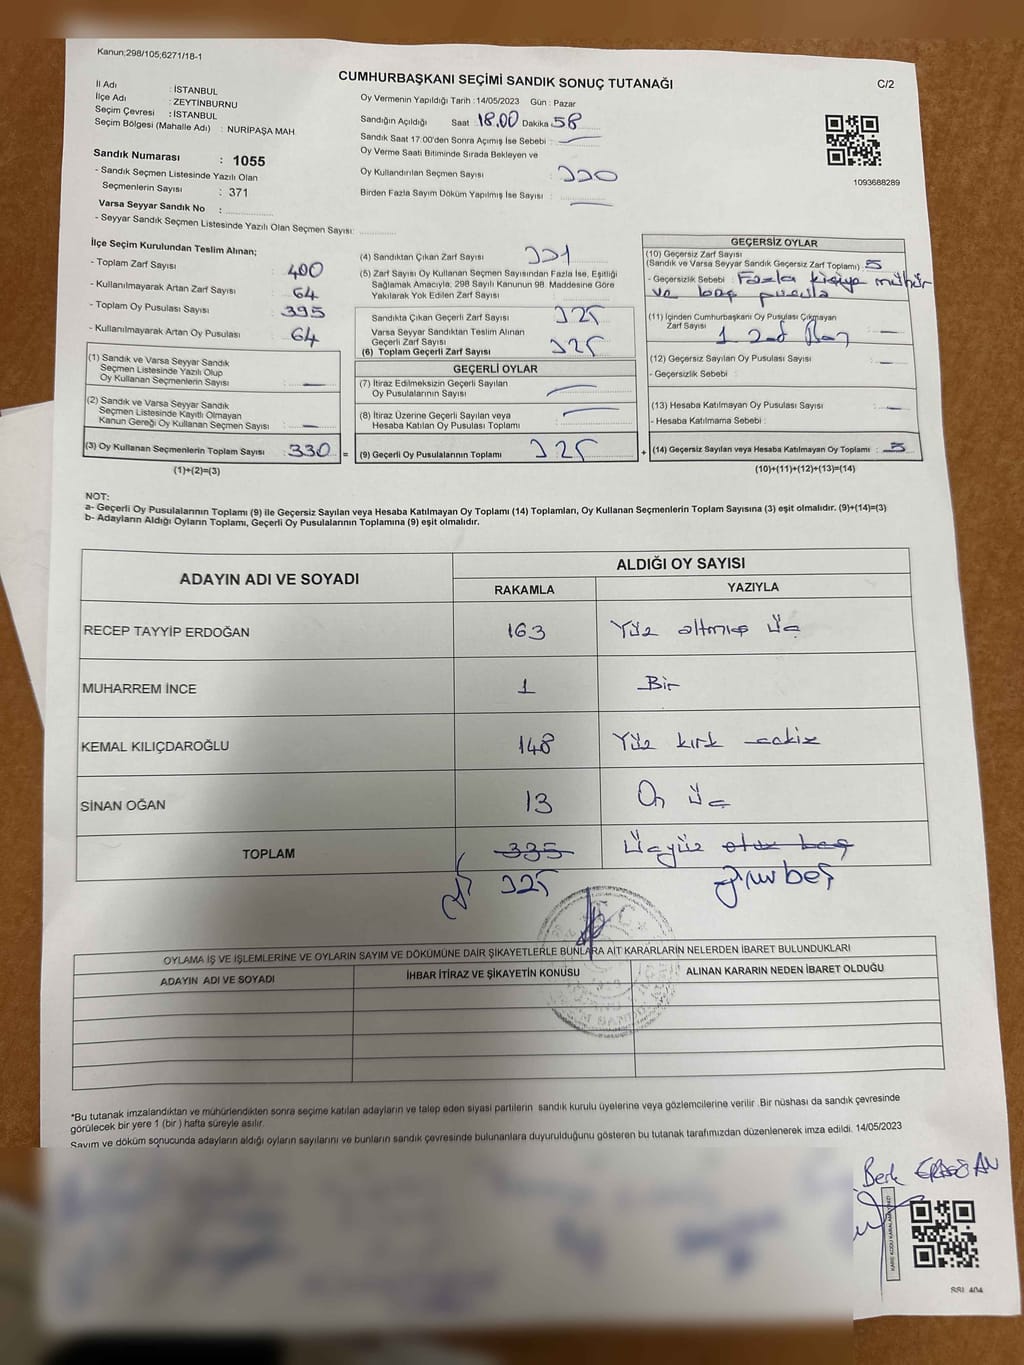 Kanun;298/105;6271/18-1
CUMHURBAŞKANI SEÇİMİ SANDIK SONUÇ TUTANAĞI
C/2
İl Adı : İSTANBUL
İlçe Adı : ZEYTİNBURNU
Seçim Çevresi : İSTANBUL
Seçim Bölgesi (Mahalle Adı) : NURİPAŞA MAH.
Sandık Numarası : 1055
- Sandık Seçmen Listesinde Yazılı Olan
Seçmenlerin Sayısı : 371
Varsa Seyyar Sandık No :
- Seyyar Sandık Seçmen Listesinde Yazılı Olan Seçmen Sayısı:
Oy Vermenin Yapıldığı Tarih : 14/05/2023 Gün : Pazar
Sandığın Açıldığı Saat 18.00 Dakika 58
Sandık Saat 17.00'den Sonra Açımış İse Sebebi : —
Oy Verme Saati Bitiminde Sırada Bekleyen ve
Oy Kullandırılan Seçmen Sayısı : 330
Birden Fazla Sayım Döküm Yapılmış İse Sayısı : —
1093688289
İlçe Seçim Kurulundan Teslim Alınan;
- Toplam Zarf Sayısı : 400
- Kullanılmayarak Artan Zarf Sayısı : 64
- Toplam Oy Pusulası Sayısı : 395
- Kullanılmayarak Artan Oy Pusulası : 64
(1) Sandık ve Varsa Seyyar Sandık
Seçmen Listesinde Yazılı Olup
Oy Kullanan Seçmenlerin Sayısı : —
(2) Sandık ve Varsa Seyyar Sandık
Seçmen Listesinde Kayıtlı Olmayan
Kanun Gereği Oy Kullanan Seçmen Sayısı : —
(3) Oy Kullanan Seçmenlerin Toplam Sayısı : 330 =
(1)+(2)=(3)
(4) Sandıktan Çıkan Zarf Sayısı : 331
(5) Zarf Sayısı Oy Kullanan Seçmen Sayısından Fazla İse, Eşitliği
Sağlamak Amacıyla, 298 Sayılı Kanunun 98. Maddesine Göre
Yakılarak Yok Edilen Zarf Sayısı :
Sandıkta Çıkan Geçerli Zarf Sayısı : 325
Varsa Seyyar Sandıktan Teslim Alınan
Geçerli Zarf Sayısı
(6) Toplam Geçerli Zarf Sayısı : 325
GEÇERLİ OYLAR
(7) İtiraz Edilmeksizin Geçerli Sayılan
Oy Pusulalarının Sayısı : —
(8) İtiraz Üzerine Geçerli Sayılan veya
Hesaba Katılan Oy Pusulaları Toplamı : —
(9) Geçerli Oy Pusulalarının Toplamı : 325 +
GEÇERSİZ OYLAR
(10) Geçersiz Zarf Sayısı
(Sandık ve Varsa Seyyar Sandık Geçersiz Zarf Toplamı) : 5
- Geçersizlik Sebebi : Fazla kişiye mühür
ve boş pusula
(11) İçinden Cumhurbaşkanı Oy Pusulası Çıkmayan
Zarf Sayısı : —
1 zarf
(12) Geçersiz Sayılan Oy Pusulası Sayısı : —
- Geçersizlik Sebebi :
(13) Hesaba Katılmayan Oy Pusulası Sayısı : —
- Hesaba Katılmama Sebebi :
(14) Geçersiz Sayılan veya Hesaba Katılmayan Oy Toplamı : 5
(10)+(11)+(12)+(13)=(14)
NOT:
a- Geçerli Oy Pusulalarının Toplamı (9) ile Geçersiz Sayılan veya Hesaba Katılmayan Oy Toplamı (14) Toplamları, Oy Kullanan Seçmenlerin Toplam Sayısına (3) eşit olmalıdır. (9)+(14)=(3)
b- Adayların Aldığı Oyların Toplamı, Geçerli Oy Pusulalarının Toplamına (9) eşit olmalıdır.
ADAYIN ADI VE SOYADI
ALDIĞI OY SAYISI
RAKAMLA YAZIYLA
RECEP TAYYİP ERDOĞAN 163 Yüz altmış üç
MUHARREM İNCE 1 Bir
KEMAL KILIÇDAROĞLU 148 Yüz kırk sekiz
SİNAN OĞAN 13 On üç
TOPLAM 335 Üçyüz otuz beş
325 yirmi beş
OYLAMA İŞ VE İŞLEMLERİNE VE OYLARIN SAYIM VE DÖKÜMÜNE DAİR ŞİKAYETLERLE BUNLARA AİT KARARLARIN NELERDEN İBARET BULUNDUKLARI
ADAYIN ADI VE SOYADI İHBAR İTİRAZ VE ŞİKAYETİN KONUSU ALINAN KARARIN NEDEN İBARET OLDUĞU
*Bu tutanak imzalandıktan ve mühürlendikten sonra seçime katılan adayların ve talep eden siyasi partilerin sandık kurulu üyelerine veya gözlemcilerine verilir .Bir nüshası da sandık çevresinde
görülecek bir yere 1 (bir ) hafta süreyle asılır.
Sayım ve döküm sonucunda adayların aldığı oyların sayılarını ve bunların sandık çevresinde bulunanlara duyurulduğunu gösteren bu tutanak tarafımızdan düzenlenerek imza edildi. 14/05/2023
Berk ERDOĞAN